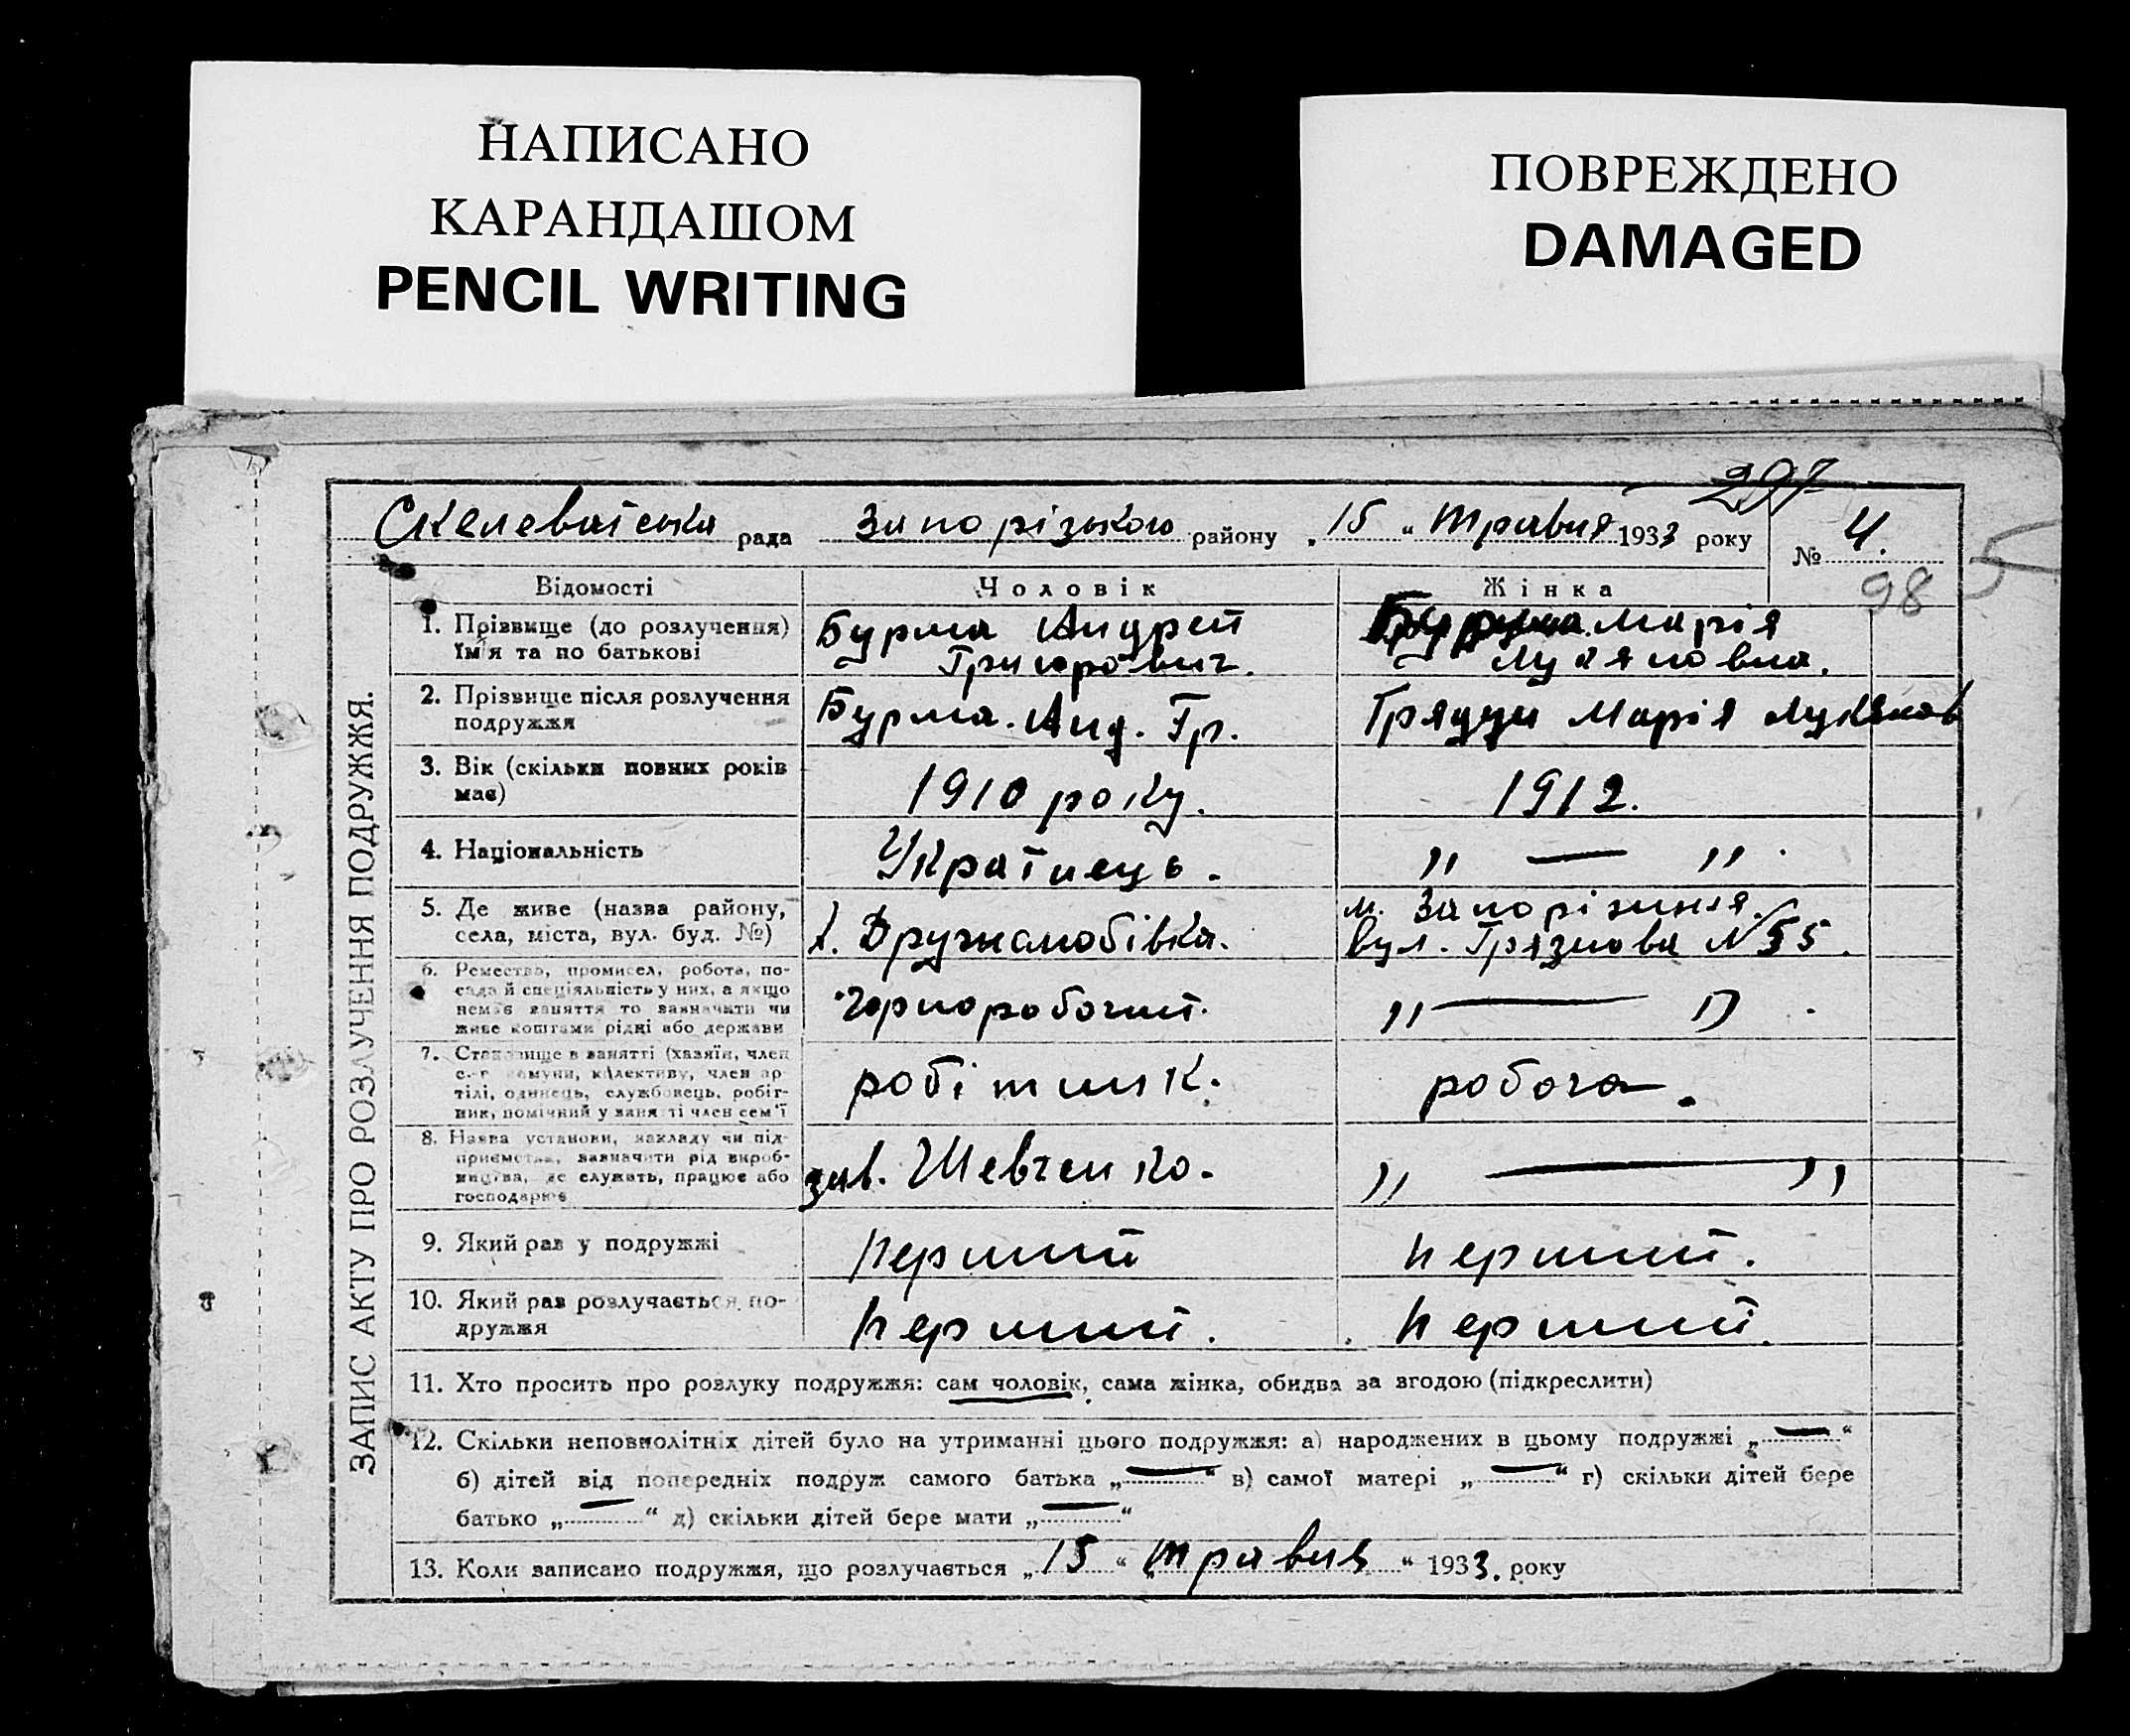 НАПИСАНО
КАРАНДАШОМ
PENCIL WRITING
ПОВРЕЖДЕНО
DAMAGED
297
Скелеватська рада Запорізького району „15“ травня 1933 року № 4.
98 5
ЗАПИС АКТУ ПРО РОЗЛУЧЕННЯ ПОДРУЖЖЯ.
Відомості Чоловік Жінка
1. Прізвище (до розлучення) Бурма Андрей Бурма Марія
їм'я та по батькові Григорович. Лук'яновна.
2. Прізвище після розлучення Бурма. Анд. Гр. Грядущ Марія Лукянов
подружжя
3. Вік (скільки повних років 1910 року. 1912.
має)
4. Національність Українець. „ — „.
5. Де живе (назва району, х. Дружелюбівка. м. Запоріжжя.
села, міста, вул. буд. №) вул. Грязнова № 55.
6. Ремество, промисел, робота, по- Чорноробочий. „ — „.
сада й спеціяльність у них, а якщо
немає заняття то зазначити чи
живе коштами рідні або держави
7. Становище в занятті (хазяїн, член робітник. робоча.
с.-г. комуни, колективу, член ар-
тілі, одинець, службовець, робіт-
ник, помічний у занятті член сем'ї
8. Назва установи, закладу чи під- зав. Шевченко. „ — „
приємства, зазначити рід вироб-
ництва, де служить, працює або
господарює
9. Який раз у подружжі перший перший.
10. Який раз розлучається по- перший. перший.
дружжя
11. Хто просить про розлуку подружжя: сам чоловік, сама жінка, обидва за згодою (підкреслити)
12. Скільки неповнолітніх дітей було на утриманні цього подружжя: а) народжених в цьому подружжі „—“
б) дітей від попередніх подруж самого батька „—“ в) самої матері „—“ г) скільки дітей бере
батько „—“ д) скільки дітей бере мати „—“
13. Коли записано подружжя, що розлучається „15“ „травня“ 1933. року